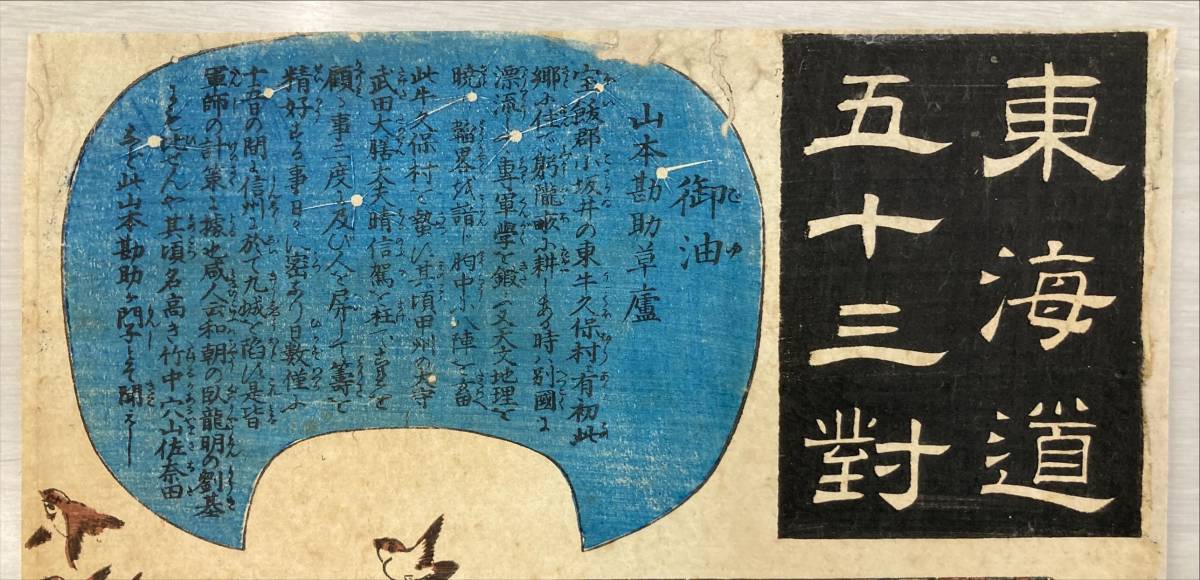 東海道
五十三對
御油
山本勘助草廬
宝飯郡小坂井の東牛久保村に有初此
郷に住で躬隴畝に耕しある時は別國に
漂流して専軍學を鍛ふ又天文地理を
暁し韜畧を諳じ胸中に八陣を畜
此牛久保村に蟄す其頃甲州の大守
武田大膳大夫晴信駕を枉て草廬を
顧る事二度に及び人を屏して籌を
精好する事日々に密なり日数僅に
十五日の間に信州に於て九城を陥す是皆
軍師の計策に據也咸人云和朝の臥龍明の劉基
にも比せんや其頃名高き竹中穴山佐奈田
など此山本勘助が門子とぞ聞えし